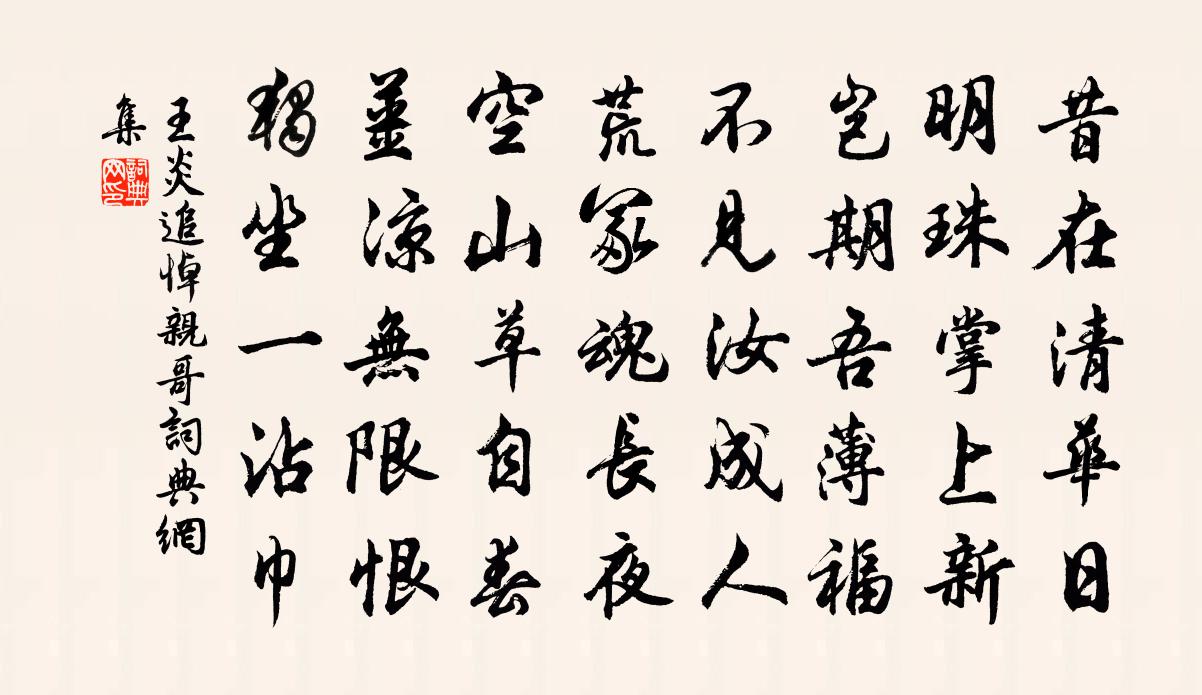 昔在清華日
明珠掌上新
豈期吾薄福
不見汝成人
荒冢魂長夜
空山草自春
薑涼無限恨
獨坐一沾巾
王炎追悼親哥詞典網
集
詞典網印